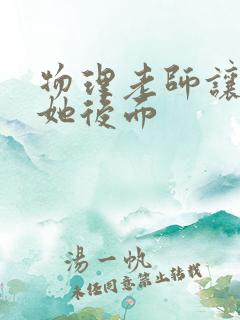 物理老師讓
她後而
湯一帆
未经同意禁止转载